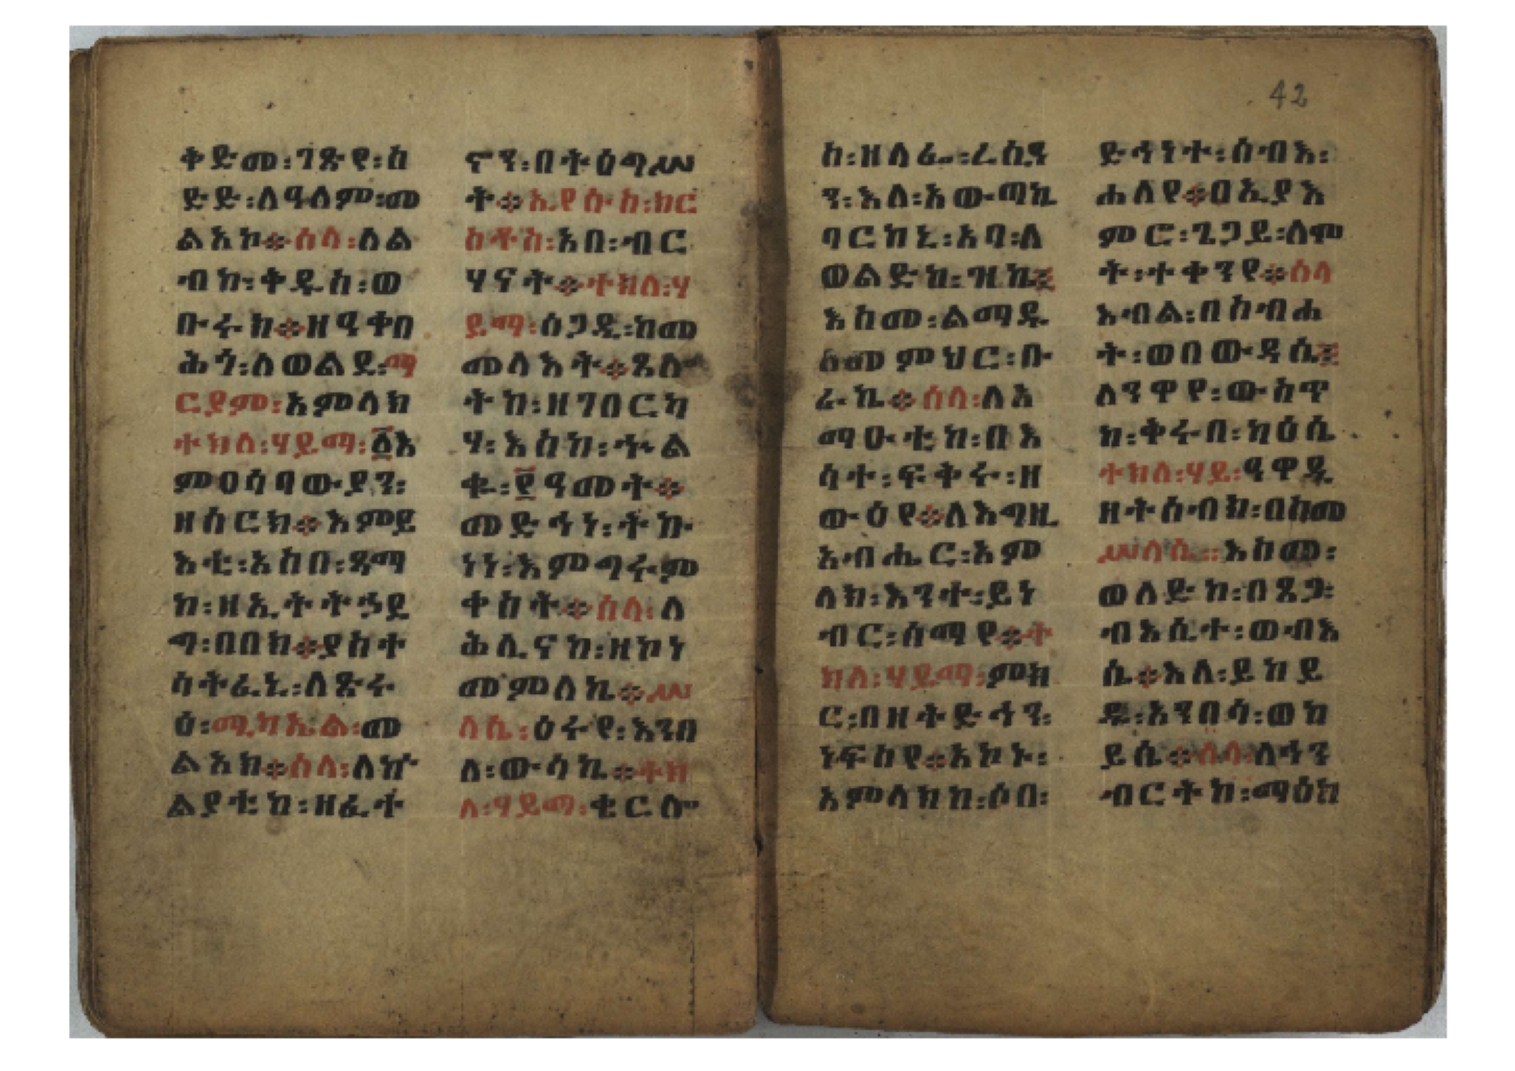 ቅድመ፡ገጽየ፡ከ
ድድ፡ለዓለም፡መ
ልአኮ፨ሰላ፡ለል
ብከ፡ቅዱስ፡ወ
ቡሩክ፨ዘዓቀበ
ሕጎ፡ለወልደ፡ማ
ርያም፡አምላክ
ተክለ፡ሃይማ፡፩እ
ምዐሳባውያን፡
ዘሰርክ፨እምይ
እቲ፡አከቡ፡ጻማ
ከ፡ዘኢትትኃደ
ግ፡በበክ፨ያስተ
ሳትፈኒ፡ለጽሩ
ዕ፡ሚካኤል፡መ
ልአክ፨ሰላ፡ለኵ
ልያቲከ፡ዘፈተ
ኖን፡በትዕግሥ
ት፨ኢየሱስ፡ክር
ስቶስ፡አበ፡ብር
ሃናት፨ተክለ፡ሃ
ይማ፡ሰጋዲ፡ከመ
መላእት፨ጼሉ
ትከ፡ዘገበርካ
ሃ፡እስከ፡ኍል
ቁ፡፼ዓመት፨
መድኅነ፡ትኩ
ነነ፡እምግሩም
ቀስት፨ሰላ፡ለ
ሕሊናከ፡ዘኮነ
መምለኪ፨ሥ
ላሴ፡ዕሩየ፡እንበ
ለ፡ውሳኬ፨ተክ
ለ፡ሃይማ፡ቂርሎ
42
ከ፡ዘለፌ፡ረሲዓ
ን፡እለ፡አውጣኪ
ባርከኒ፡አባ፡ለ
ወልድከ፡ዝከ፤
እስመ፡ልማዱ
ለመምህር፡ቡ
ራኬ፨ሰላ፡ለአ
ማዑቲከ፡በእ
ሳተ፡ፍቅሩ፡ዘ
ውዕየ፨ለእግዚ
አብሔር፡አም
ላክ፡እንተ፡ይነ
ብር፡ሰማየ፨ተ
ክለ፡ሃይማ፡ምክ
ር፡በዘትድኅን፡
ነፍስየ፨አኮኑ፡
አምላክከ፡ሶበ፡
ድኅነተ፡ሰብእ፡
ሐለየ፨ዐኢያእ
ምሮ፡ጌጋይ፡ለሞ
ት፡ተቀንየ፨ሰላ
እብል፡በስብሐ
ት፡ወበውዳሴ፤
ለንዋየ፡ውስጥ
ከ፡ቅሩበ፡ከዕሴ
ተክለ፡ሃይ፡ዓዋዲ
ዘትሰብክ፡በከመ
ሥላሴ፡፡እስመ፡
ወለድከ፡በጸጋ፡
ብእሲተ፡ወብእ
ሴ፨እለ፡ይከይ
ዱ፡አንበሳ፡ወከ
ይሴ፨ሰላ፡ለኅን
ብርትከ፡ማዕከ